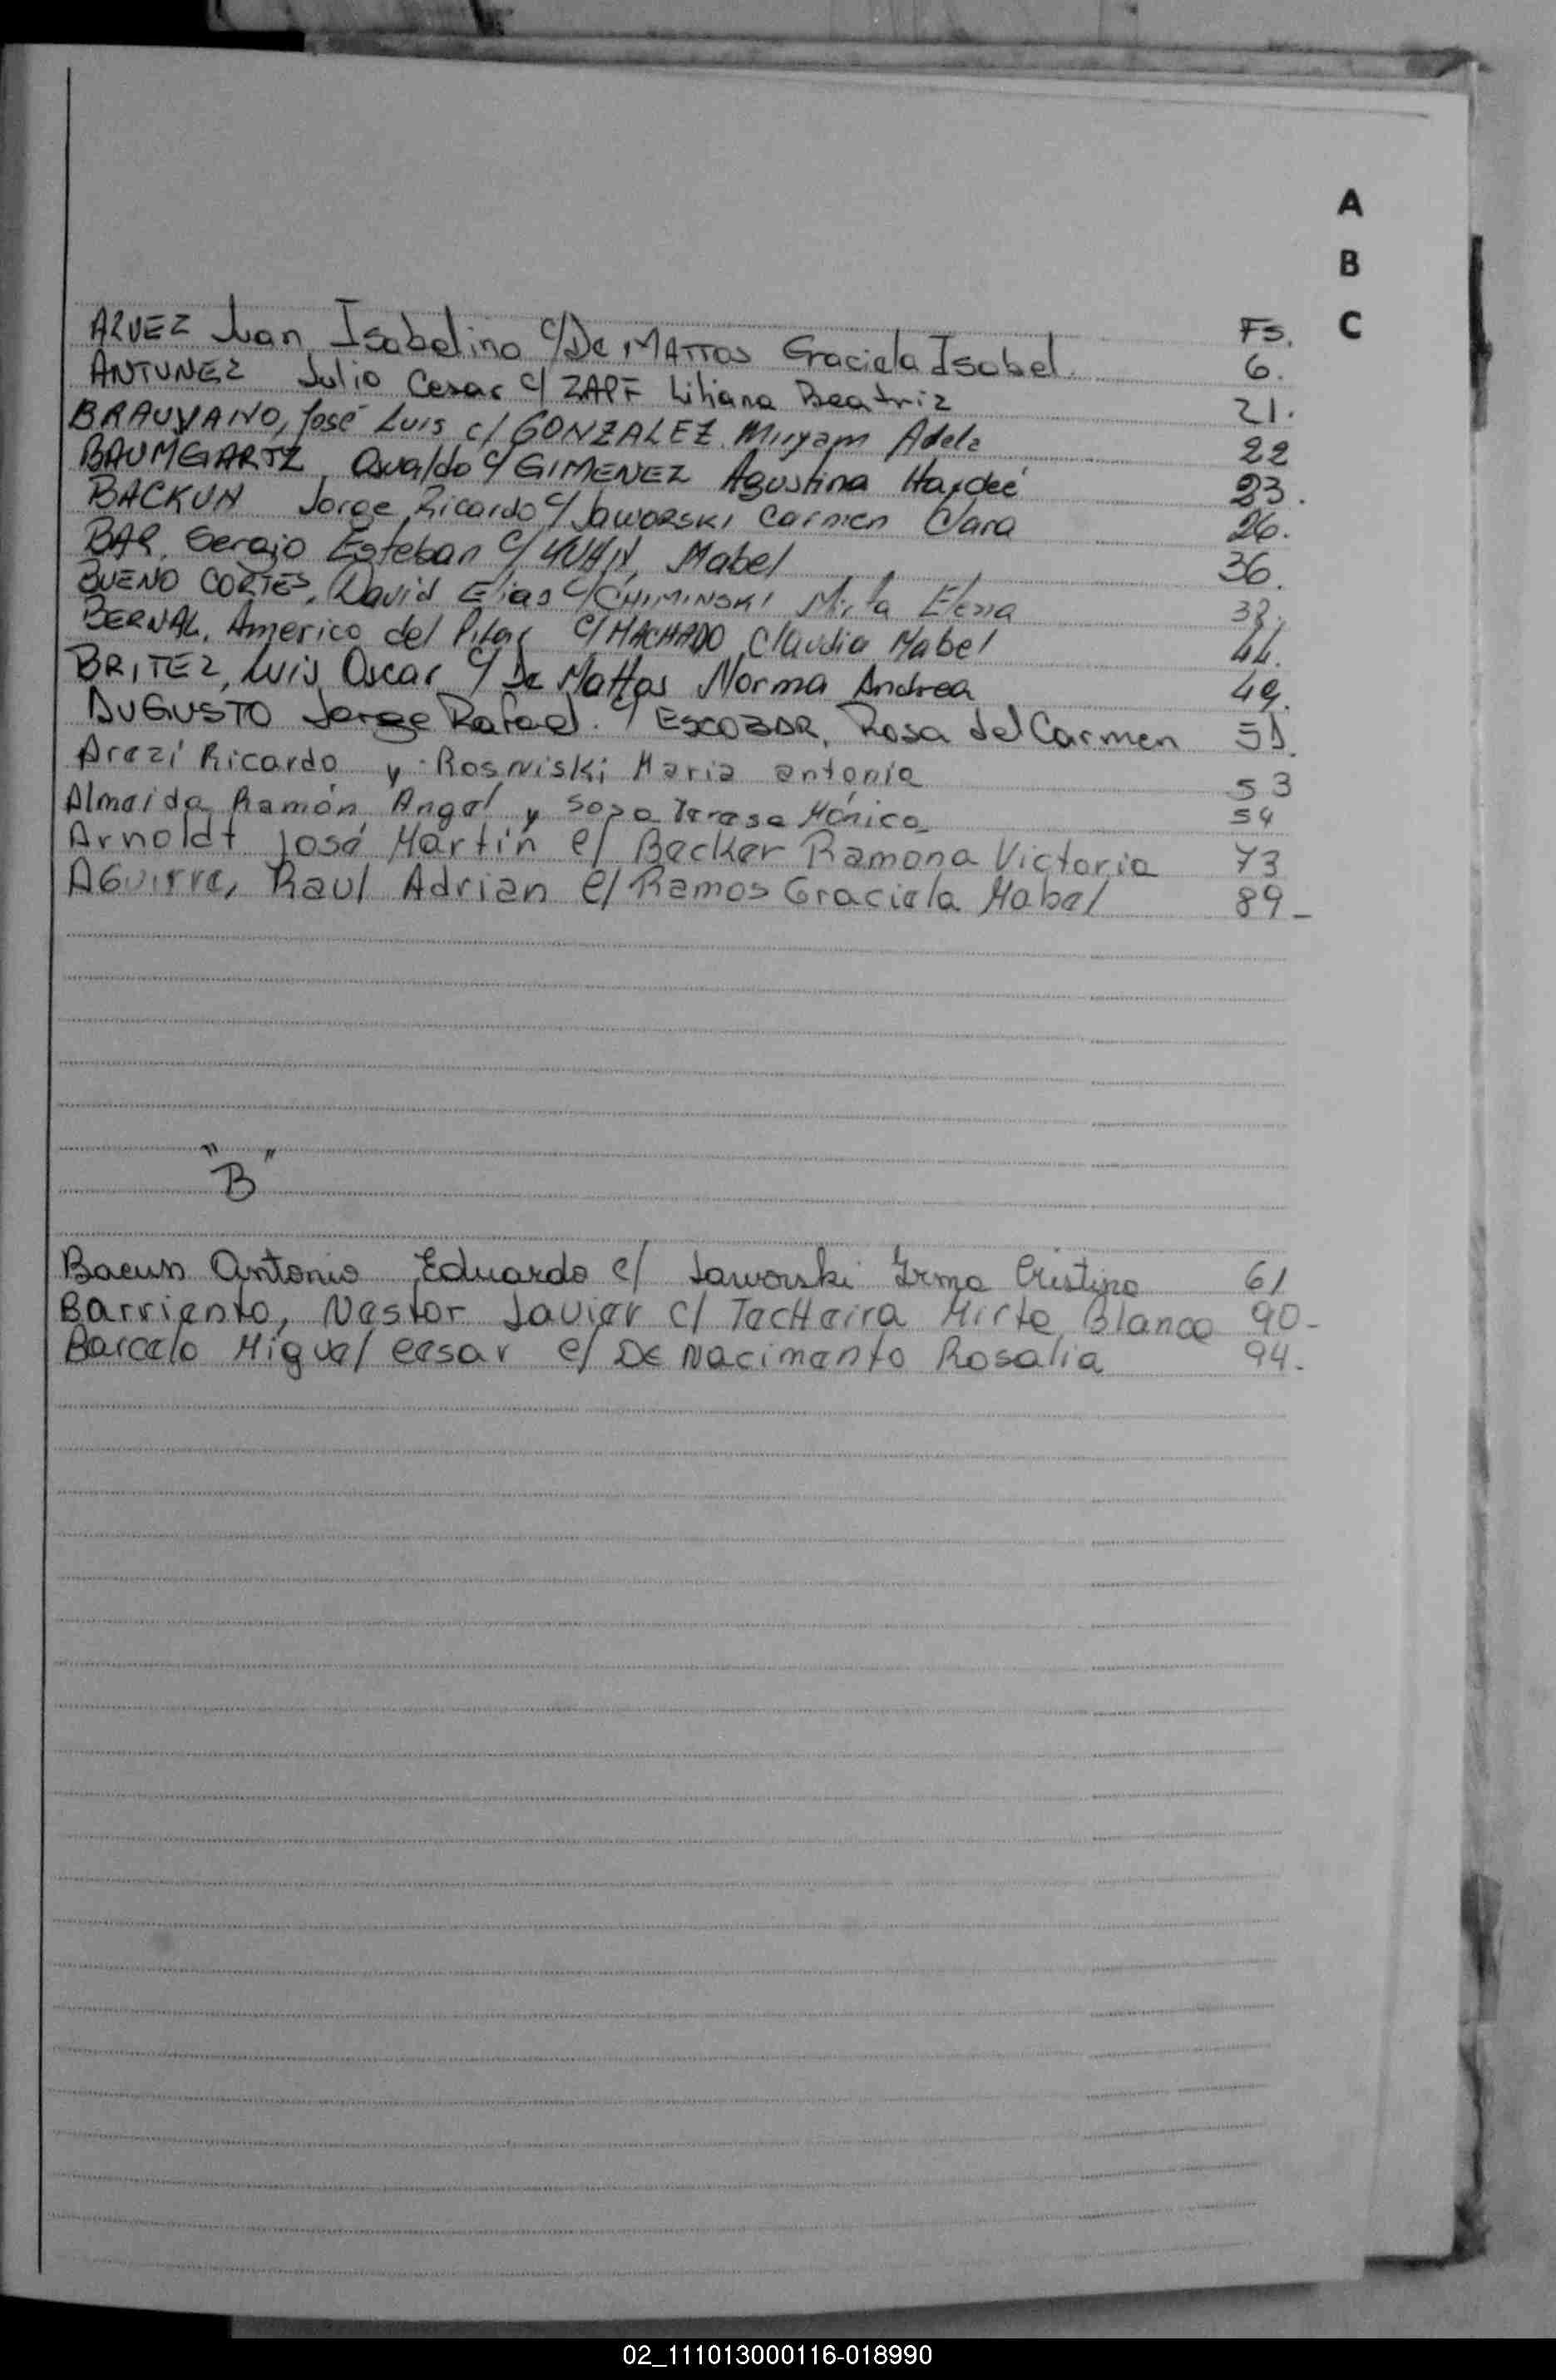 A
B
C
Fs.
ALVEZ Juan Isabelino c/ De MATTOS Graciela Isabel. 6.
ANTUNEZ Julio Cesar c/ ZAPF Liliana Beatriz 21.
BRAUVANO, José Luis c/ GONZALEZ Miryam Adela 22
BAUMGARTZ Osvaldo c/ GIMENEZ Agustina Haydeé 23.
BACKUN Jorge Ricardo c/ JaWORSKI Carmen Clara 26.
BAR, Sergio Esteban c/ KUHN, Mabel 36.
BUENO CORTES, David Elias c/ CHIMINSKI Mirta Elena 38.
BERNAL, Americo del Pilar c/ MACHADO Claudia Mabel 44.
BRITEZ, Luis Oscar c/ De Mattos Norma Andrea 49.
AUGUSTO Jorge Rafael. c/ ESCOBAR, Rosa del Carmen 51.
Arezi Ricardo y Rosniski Maria antonia 53
Almeida Ramón Angel y Sosa Teresa Mónica 54
Arnoldt José Martín c/ Becker Ramona Victoria 73
AGuirre, Raul Adrian c/ Ramos Graciela Mabel 89-
"B"
Bacun Antonio Eduardo c/ Jaworski Irma Cristina 61
Barriento, Nestor Javier c/ TecHeira Mirte Blanca 90-
Barcelo Miguel cesar c/ De Nacimento Rosalia 94.
02_111013000116-018990